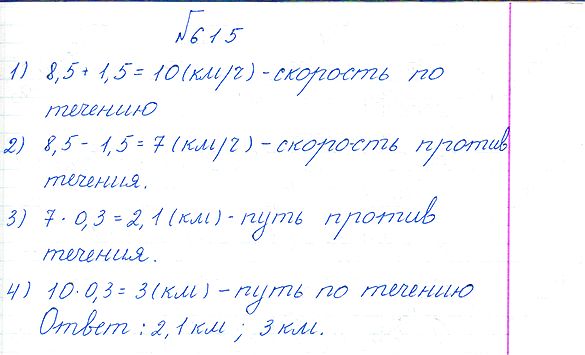 №615
1) 8,5 + 1,5 = 10 (км/г) - скорость по
течению
2) 8,5 - 1,5 = 7 (км/г) - скорость против
течения.
3) 7 · 0,3 = 2,1 (км) - путь против
течения.
4) 10 · 0,3 = 3 (км) - путь по течению
Ответ : 2,1 км ; 3 км.